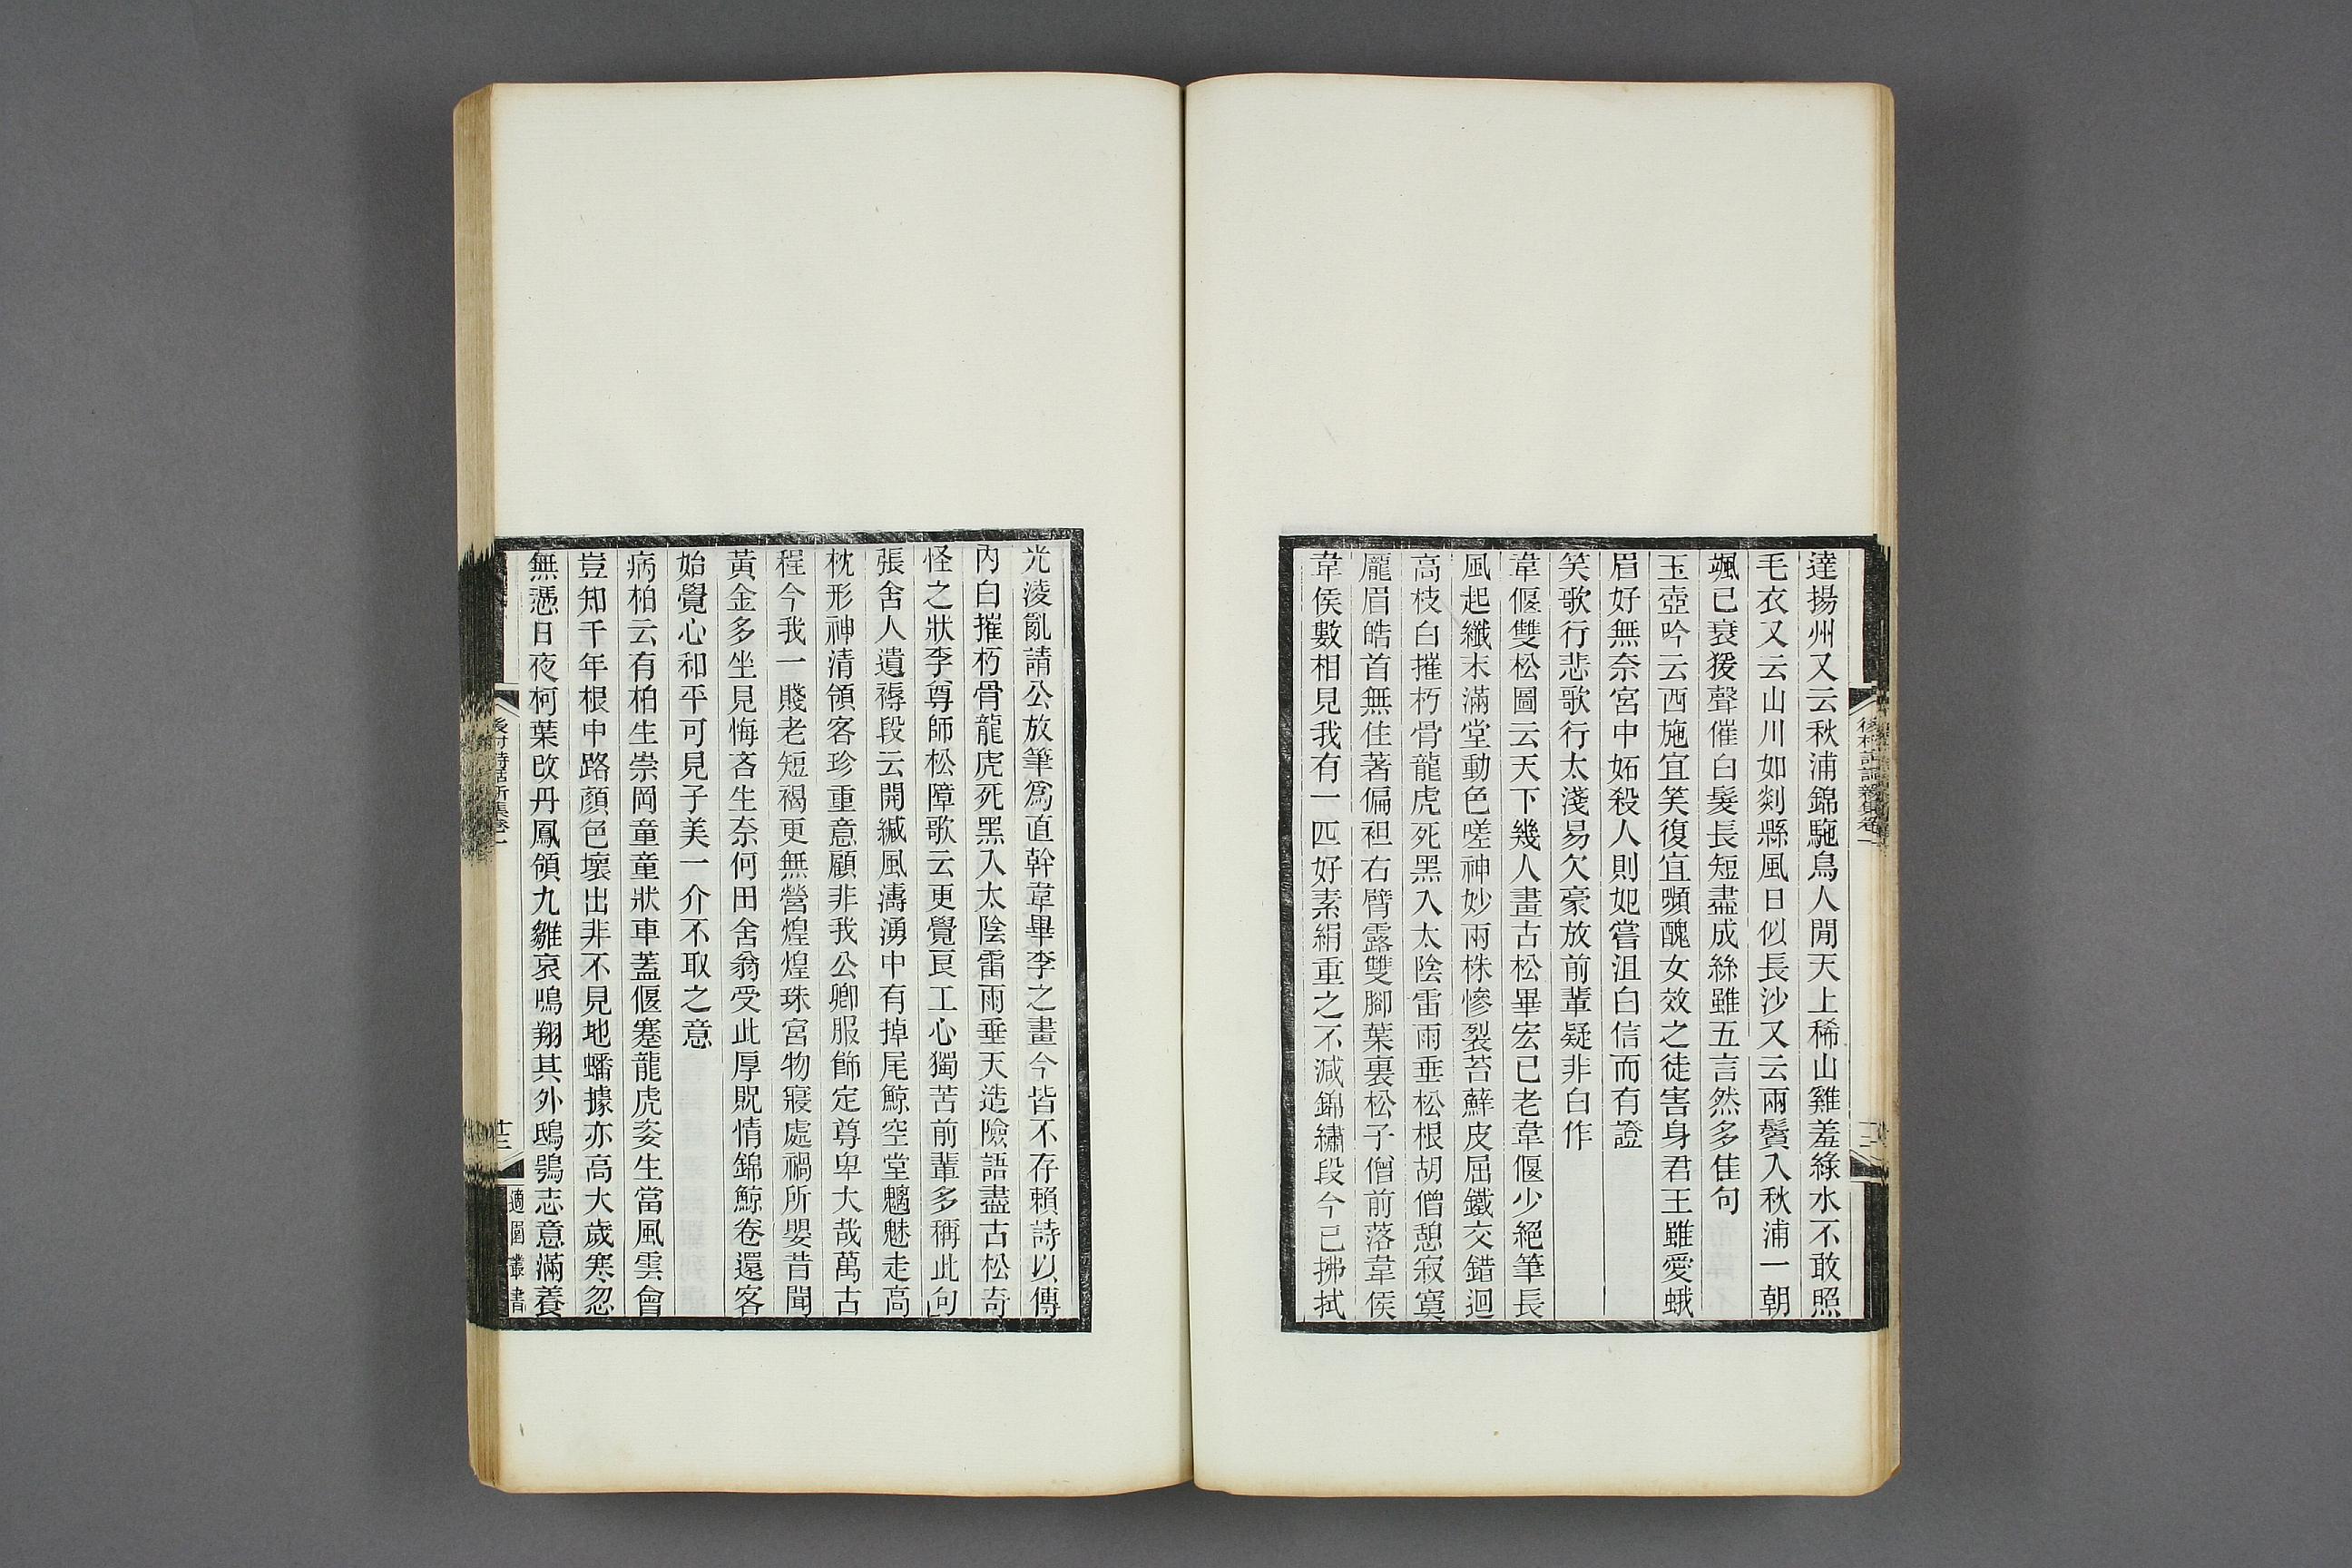 達揚州又云秋浦錦駞鳥人閒天上稀山雞羞綠水不敢照
毛衣又云山川如剡縣風日似長沙又云兩鬢入秋浦一朝
颯已衰猨聲催白髮長短盡成絲雖五言然多佳句
玉壺吟云西施宜笑復宜嚬醜女效之徒害身君王雖愛蛾
眉好無奈宮中妬殺人則妃嘗沮白信而有證
笑歌行悲歌行太淺易欠豪放前輩疑非白作
韋偃雙松圖云天下幾人畫古松畢宏已老韋偃少絕筆長
風起纖末滿堂動色嗟神妙兩株慘裂苔蘚皮屈鐵交錯迴
高枝白摧朽骨龍虎死黑入太陰雷雨垂松根胡僧憩寂寞
龐眉皓首無住著偏袒右臂露雙腳葉裏松子僧前落韋侯
韋侯數相見我有一匹好素絹重之不減錦繡段今已拂拭
光淩亂請公放筆爲直幹韋畢李之畫今皆不存賴詩以傳
內白摧朽骨龍虎死黑入太陰雷雨垂天造險語盡古松奇
怪之狀李尊師松障歌云更覺良工心獨苦前輩多稱此句
張舍人遺褥段云開緘風濤湧中有掉尾鯨空堂魑魅走高
枕形神清領客珍重意顧非我公卿服飾定尊卑大哉萬古
程今我一賤老短褐更無營煌煌珠宮物寢處禍所嬰昔聞
黃金多坐見悔吝生奈何田舍翁受此厚貺情錦鯨卷還客
始覺心和平可見子美一介不取之意
病柏云有柏生崇岡童童狀車蓋偃蹇龍虎姿生當風雲會
豈知千年根中路顏色壞出非不見地蟠據亦高大歲寒忽
無憑日夜柯葉改丹鳳領九雛哀鳴翔其外鴟鴞志意滿養
後村詩話新集卷一
十三
適園叢書